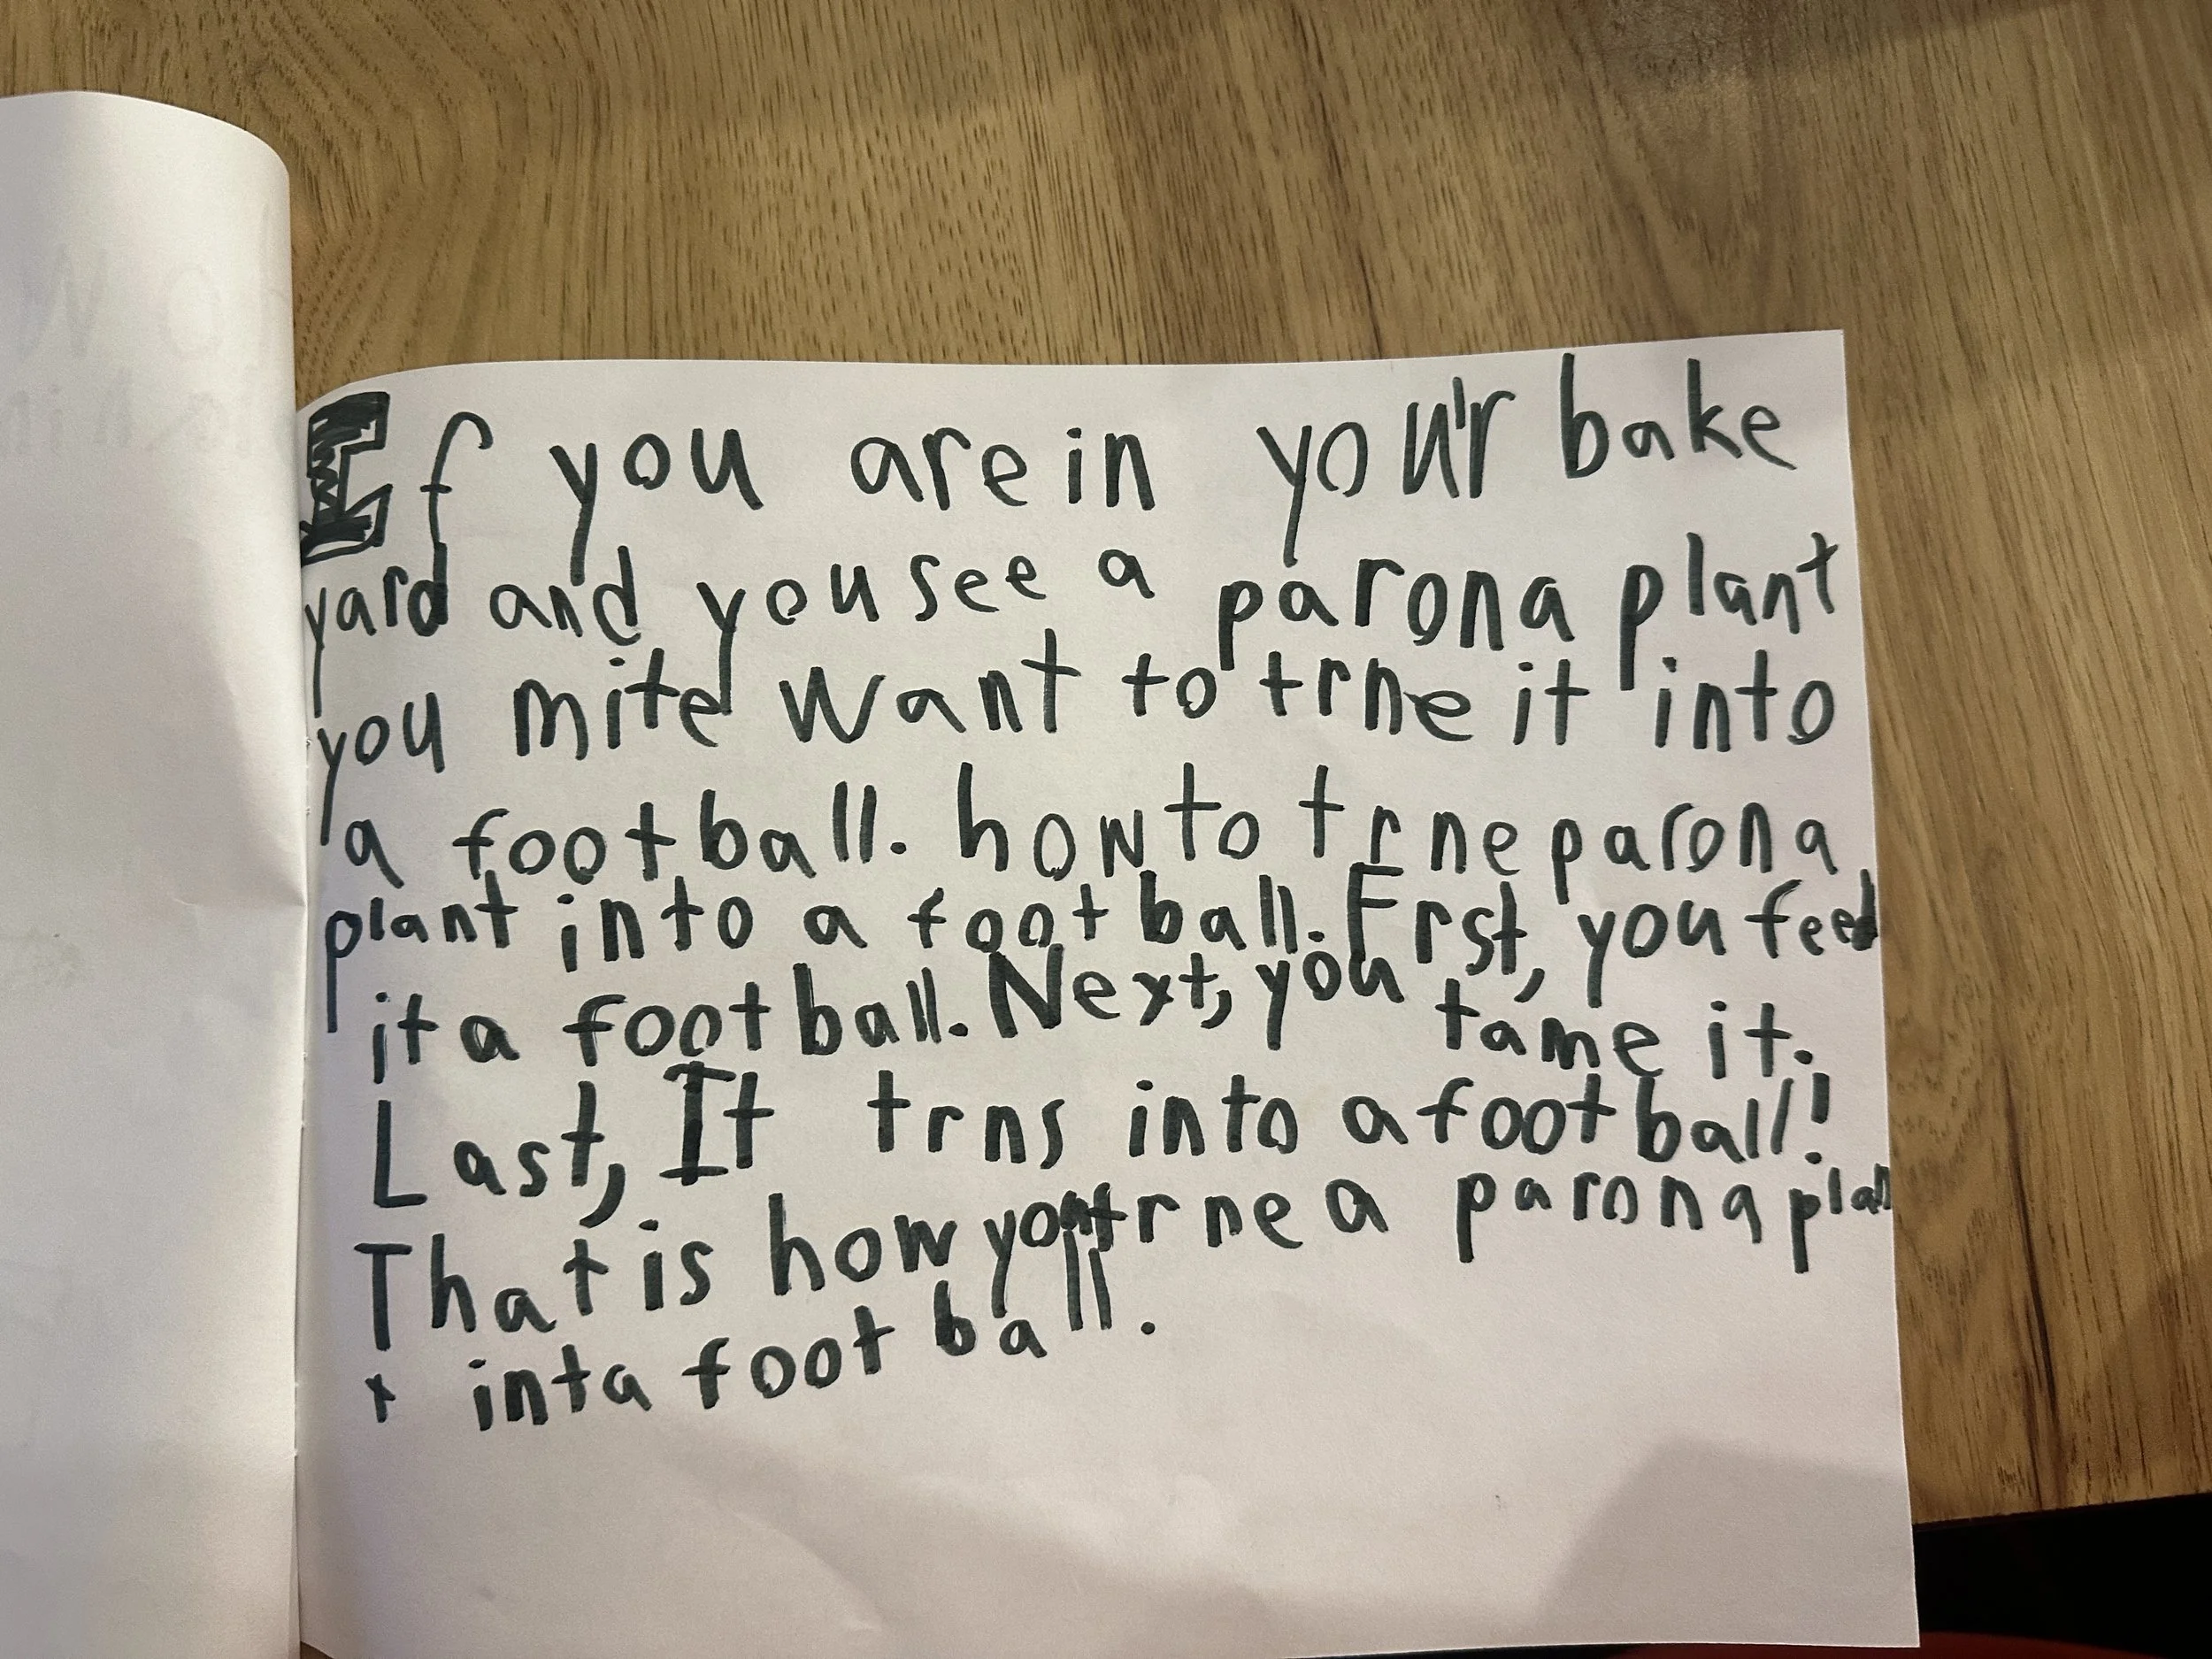 If you are in you'r bake
yard and you see a parona plant
you mite want to trne it into
a football. how to trne parona
plant into a football. Frst, you feed
it a football. Next, you tame it.
Last, It trns into a football!
That is how you trne a parona plan
t inta football.